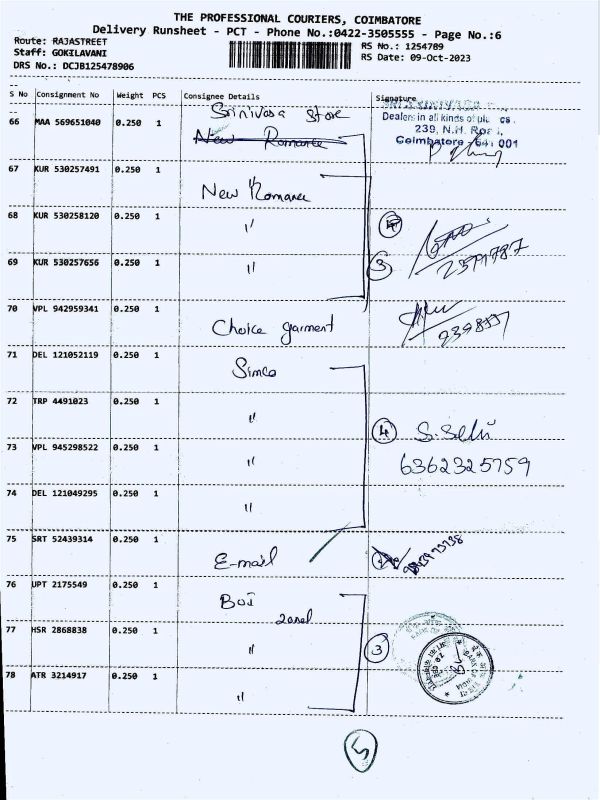 THE PROFESSIONAL COURIERS, COIMBATORE
Delivery Runsheet - PCT - Phone No.:0422-3505555 - Page No.:6
Route: RAJASTREET
Staff: GOKILAVANI
DRS No.: DCJB125478906
RS No.: 1254789
RS Date: 09-Oct-2023
S No Consignment No Weight PCS Consignee Details Signature
66 MAA 569651040 0.250 1 Srinivasa Store
New Romance
Dealers in all kinds of
239, N.H. Road,
Coimbatore 641 001
67 KUR 530257491 0.250 1 New Romance
68 KUR 530258120 0.250 1 〃
69 KUR 530257656 0.250 1 〃 3
2371787
70 VPL 942959341 0.250 1 Choice garment
71 DEL 121052119 0.250 1 Simco
72 TRP 4491023 0.250 1 〃 4 S. Selvi
73 VPL 945298522 0.250 1 〃 6362325759
74 DEL 121049295 0.250 1 〃
75 SRT 52439314 0.250 1 E-mail
76 UPT 2175549 0.250 1 BOI
zonal
77 HSR 2868838 0.250 1 〃 3
78 ATR 3214917 0.250 1 〃
BANK OF INDIA
5